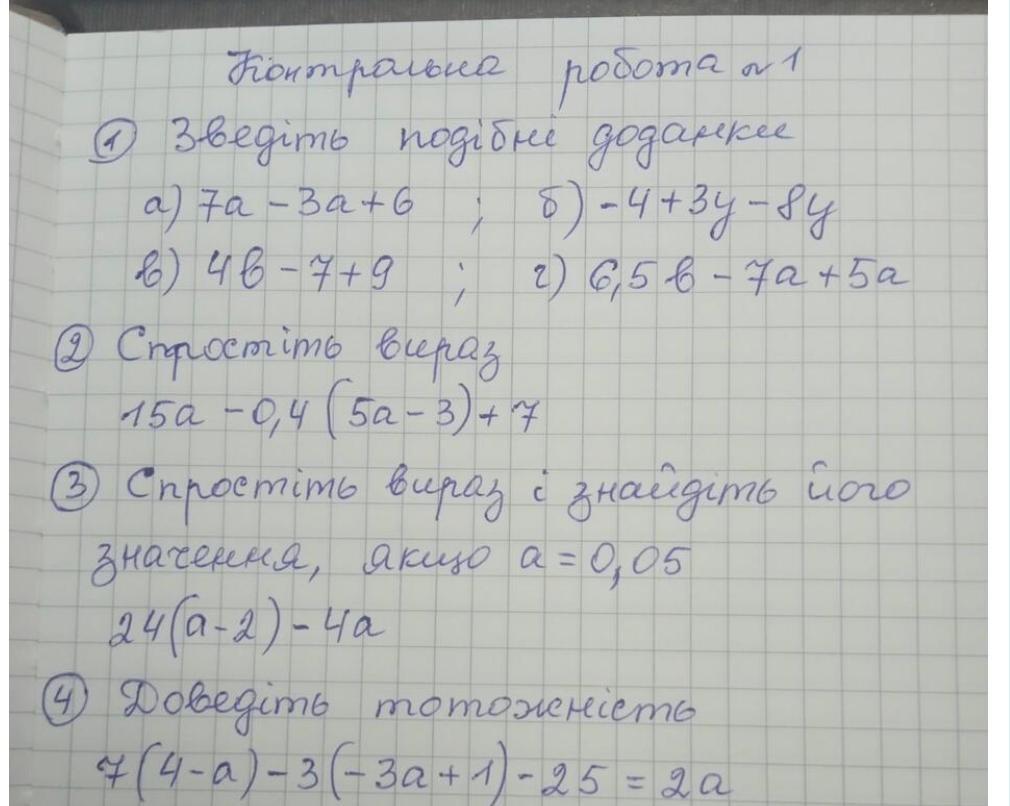 Контрольна робота №1
① Зведіть подібні доданки
а) 7а - 3а + 6 ; б) -4 + 3у - 8у
в) 4в - 7 + 9 ; г) 6,5в - 7а + 5а
② Спростіть вираз
15а - 0,4 (5а - 3) + 7
③ Спростіть вираз і знайдіть його
значення, якщо а = 0,05
24(а - 2) - 4а
④ Доведіть тотожність
7(4 - а) - 3(-3а + 1) - 25 = 2а